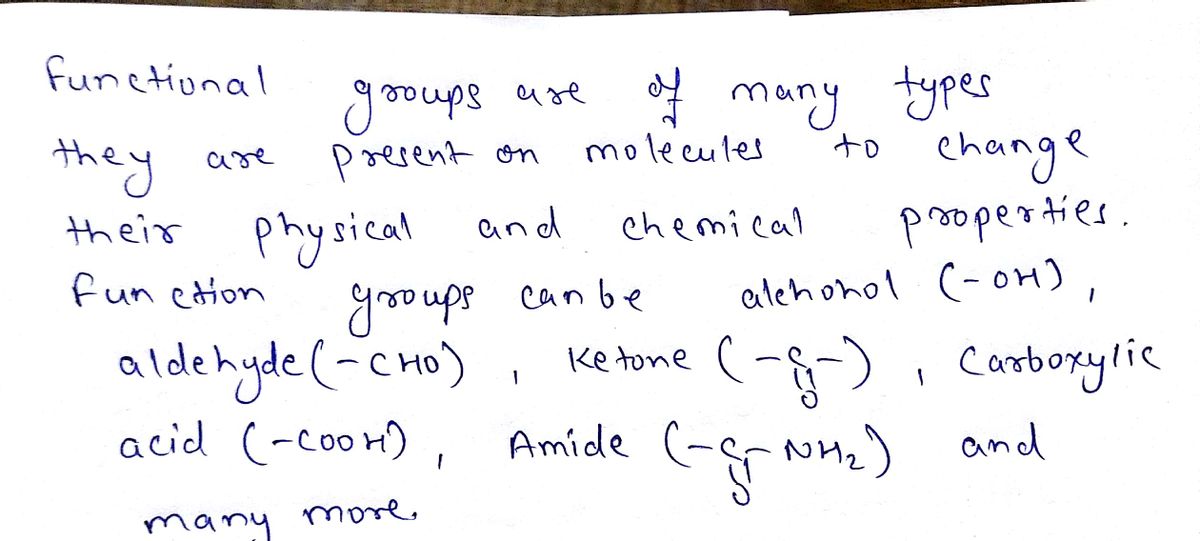 functional groups are of many types
they are present on molecules to change
their physical and chemical properties.
function groups can be alchohol (-OH),
aldehyde (-CHO), Ketone (-C-),  Carboxylic
O
acid (-COOH), Amide (-C-NH₂) and
O
many more.